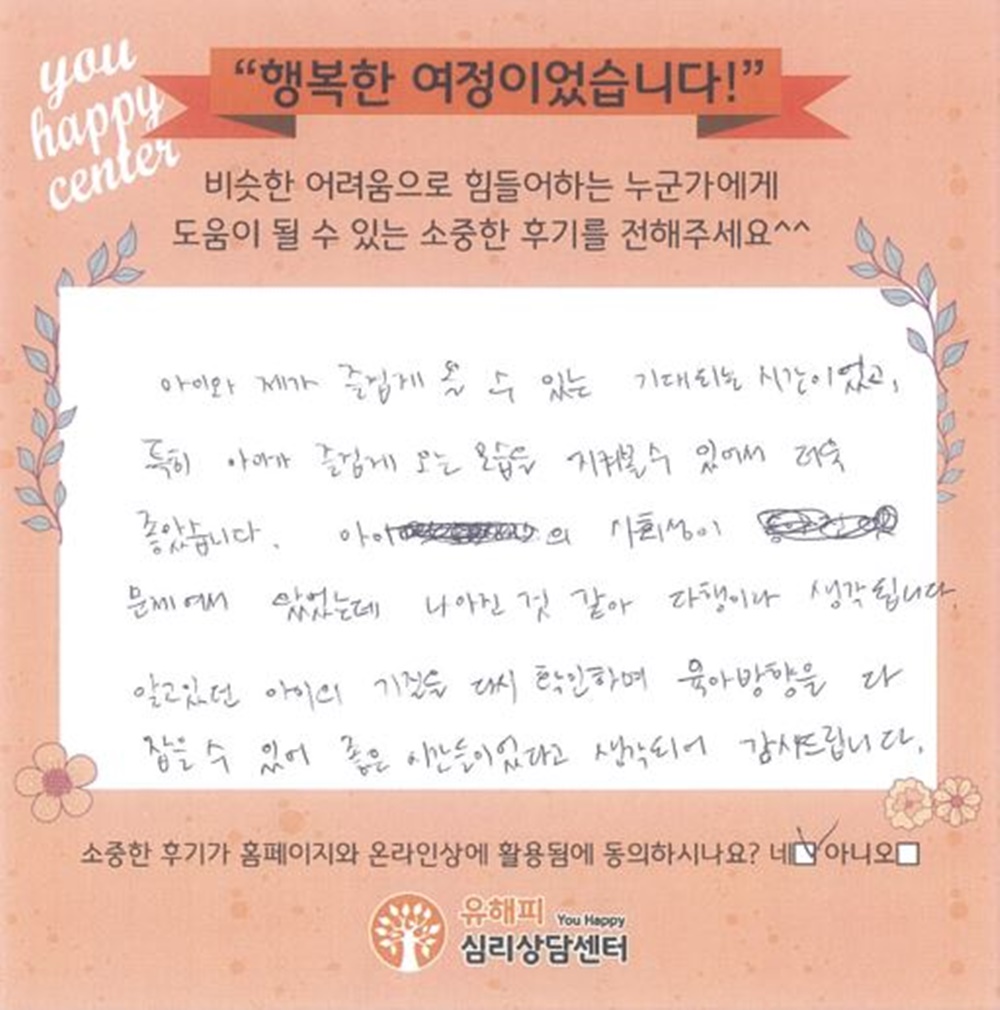 you
happy
center
“행복한 여정이었습니다!”
비슷한 어려움으로 힘들어하는 누군가에게
도움이 될 수 있는 소중한 후기를 전해주세요^^
아이와 제가 즐겁게 올 수 있는 기대되는 시간이었고,
특히 아이가 즐겁게 오는 모습을 지켜볼수 있어서 더욱
좋았습니다. 아이 의 사회성이
문제여서 왔었는데 나아진 것 같아 다행이다 생각됩니다.
알고있던 아이의 기질을 다시 확인하며 육아방향을 다
잡을 수 있어 좋은 시간들이었다고 생각되어 감사드립니다.
소중한 후기가 홈페이지와 온라인상에 활용됨에 동의하시나요? 네 아니오
유해피 You Happy
심리상담센터